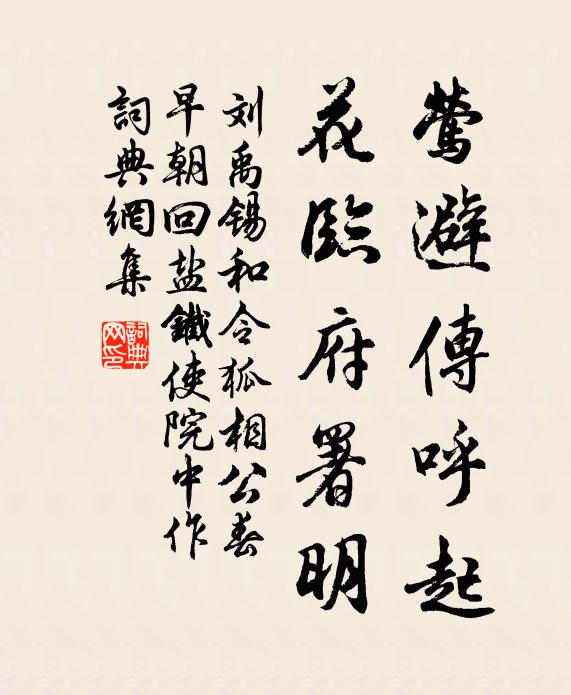 莺避傳呼起
花臨府署明
刘禹锡和令狐相公春
早朝回盐鐵使院中作
詞典網集
詞典网印